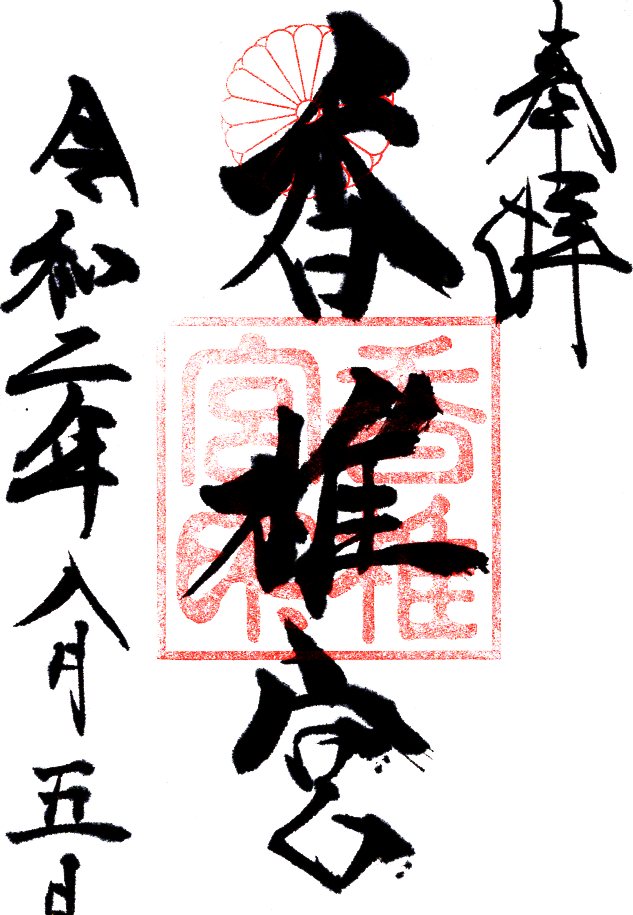 奉拝
香椎宮
香椎宮印
令和二年八月五日